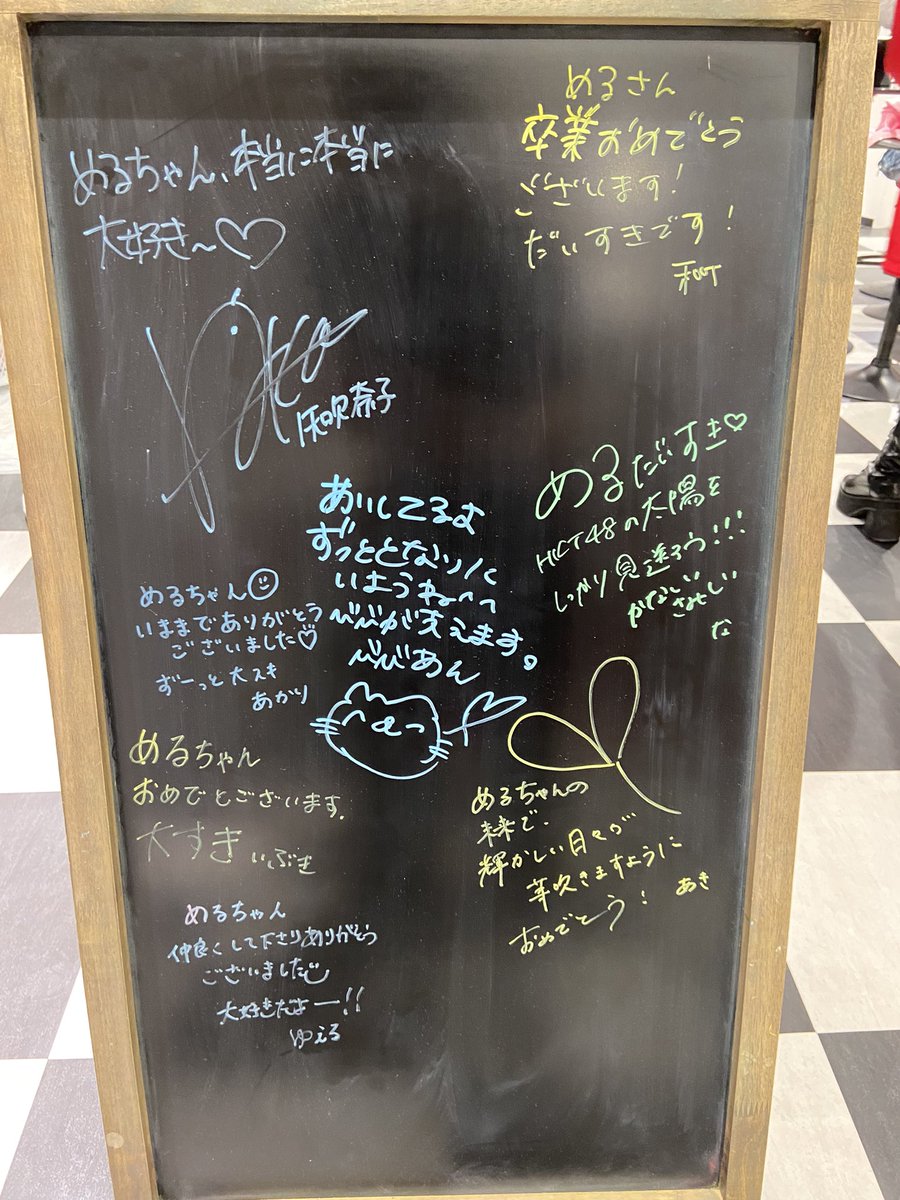 めるちゃん、本当に本当に
大好き〜♡
矢吹奈子
めるさん
卒業おめでとう
ございます!
だいすきです!
めるだいすき♡
HKT48の太陽を
しっかり見送ろう!!!
かなしい
さみしい
な
あいしてるよ
ずっととなりに
いようね^^
びびが支えます。
びびあん
めるちゃん
いままでありがとう
ございました♡
ずーっと大スキ
あかり
めるちゃん
おめでとございます.
大すき いぶき
めるちゃんの
未来で、
輝かしい日々が
芽吹きますように
おめでとう! あき
めるちゃん
仲良くして下さりありがとう
ございました
大好きだよー!!
ゆえる